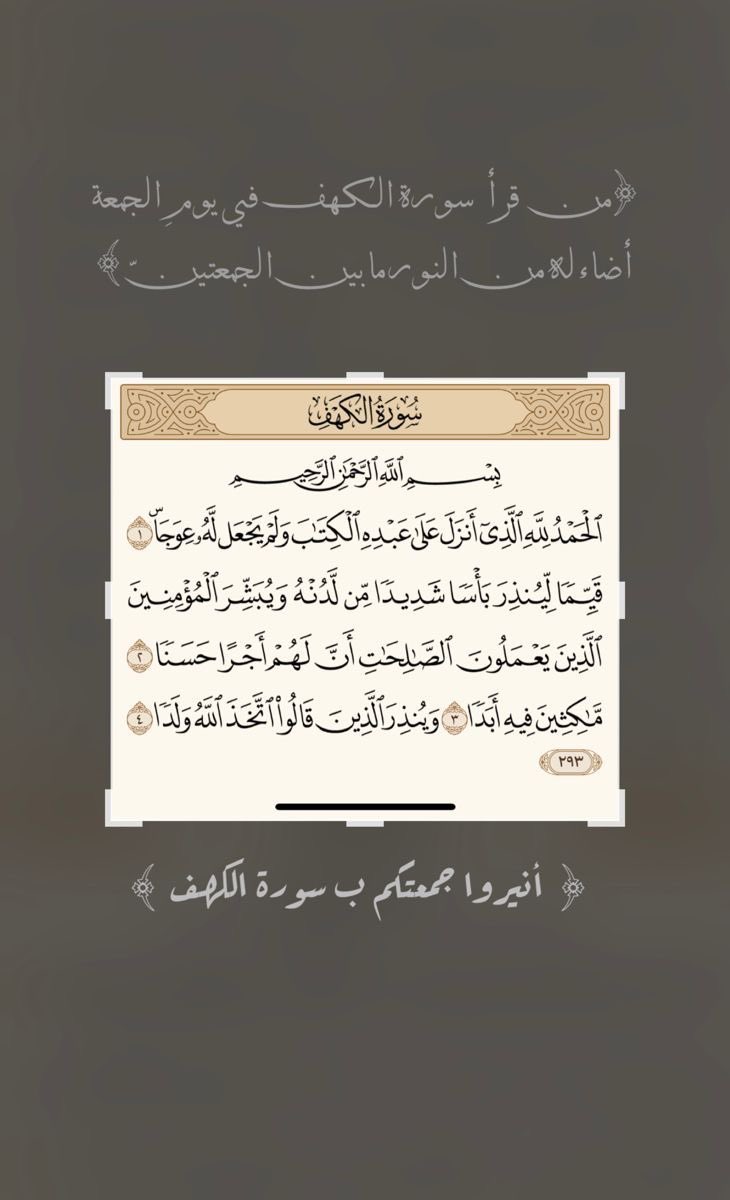 ﴿من قرأ سورة الكهف في يومِ الجمعة
أضاء له من النور ما بين الجمعتينّ﴾
سُورَةُ الكَهۡفِ
بِسۡمِ ٱللَّهِ ٱلرَّحۡمَٰنِ ٱلرَّحِيمِ
ٱلۡحَمۡدُ لِلَّهِ ٱلَّذِيٓ أَنزَلَ عَلَىٰ عَبۡدِهِ ٱلۡكِتَٰبَ وَلَمۡ يَجۡعَل لَّهُۥ عِوَجَاۜ ١
قَيِّمٗا لِّيُنذِرَ بَأۡسٗا شَدِيدٗا مِّن لَّدُنۡهُ وَيُبَشِّرَ ٱلۡمُؤۡمِنِينَ
ٱلَّذِينَ يَعۡمَلُونَ ٱلصَّٰلِحَٰتِ أَنَّ لَهُمۡ أَجۡرًا حَسَنٗا ٢
مَّٰكِثِينَ فِيهِ أَبَدٗا ٣ وَيُنذِرَ ٱلَّذِينَ قَالُواْ ٱتَّخَذَ ٱللَّهُ وَلَدٗا ٤
٢٩٣
﴿ أنيروا جمعتكم ب سورة الكهف ﴾